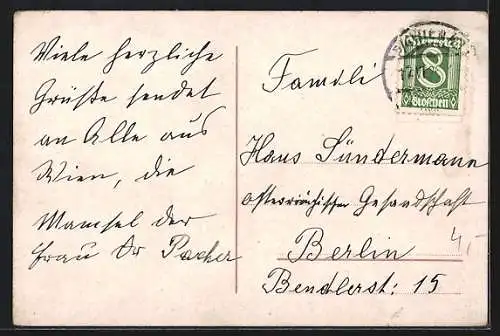 Viele herzliche
Grüße sendet
an Alle aus
Wien, die
Mamsel der
Frau Dr Pacher
Famili
Hans Sündermann
österreichischen Gesandschaft
Berlin
Bendlerst: 15
4,-
WIEN
Österreich
8
Groschen